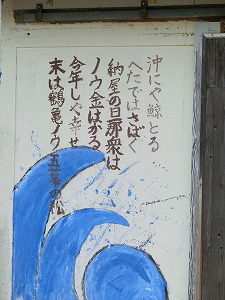 沖にや鯨とる
へたではさばく
納屋の旦那衆は
ノウ金はかる
今年しや幸せ
末は鶴亀ノウ五葉の松